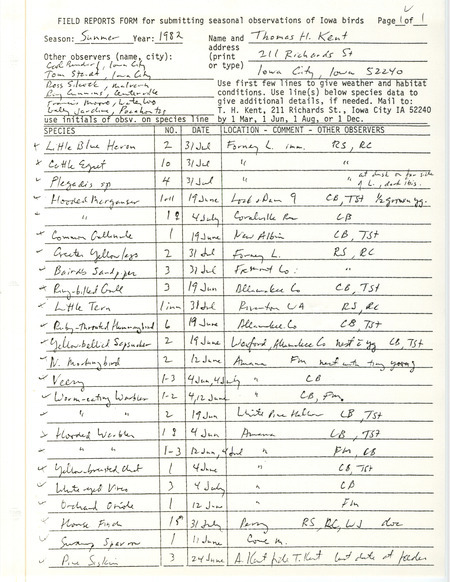 FIELD REPORTS FORM for submitting seasonal observations of Iowa birds Page 1 of 1
Season: Summer Year: 1982 Name and Thomas H. Kent
Other observers (name, city): address 211 Richards St
(print
or type) Iowa City, Iowa 52240
Tom Stoudt, Iowa City
Ross Silcock, Malvern
Use first few lines to give weather and habitat
conditions. Use line(s) below species data to
give additional details, if needed. Mail to:
T. H. Kent, 211 Richards St., Iowa City IA 52240
use initials of obsv. on species line by 1 Mar, 1 Jun, 1 Aug, or 1 Dec.
SPECIES NO. DATE LOCATION - COMMENT - OTHER OBSERVERS
Little Blue Heron 2 31 Jul Forney L. imm. RS, RC
Cattle Egret 10 31 Jul " "
Plegadis sp 4 31 Jul " at dusk on far side
of L., dark ibis.
Hooded Merganser 19 June Lock & Dam 9 CB, TSt
" 1♀ 4 July Coralville Res CB
Common Gallinule 1 19 June New Albin CB, TSt
Greater Yellowlegs 2 31 Jul Forney L. RS, RC
Bairds Sandpiper 3 31 Jul Fremont Co. "
Ring-billed Gull 3 19 Jun Allamakee Co CB, TSt
Little Tern 1 imm 31 Jul Riverton WA RS, RC
Ruby-throated Hummingbird 6 19 June Allamakee Co CB, TSt
Yellow-bellied Sapsucker 2 19 June Wexford, Allamakee Co nest c yg CB, TSt
N. Mockingbird 2 12 June Amana FM nest with tiny young
Veery 1-3 4 Jun, 4 July " CB
Worm-eating Warbler 1-2 4, 12 June " CB, FM
" " 2 19 Jun White Pine Hollow CB, TSt
Hooded Warbler 1♀ 4 Jun Amana CB, TSt
" " 1-3 12 Jun, 4 Jul " FM, CB
Yellow-breasted Chat 1 4 June " CB, TSt
White-eyed Vireo 3 4 July " CB
Orchard Oriole 1 12 Jun " FM
House Finch 1♂ 31 July Percy RS, RC, WJ doc
Swamp Sparrow 1 11 June Cone M.
Pine Siskin 3 24 June A. Kent fide T. Kent last date at feeder